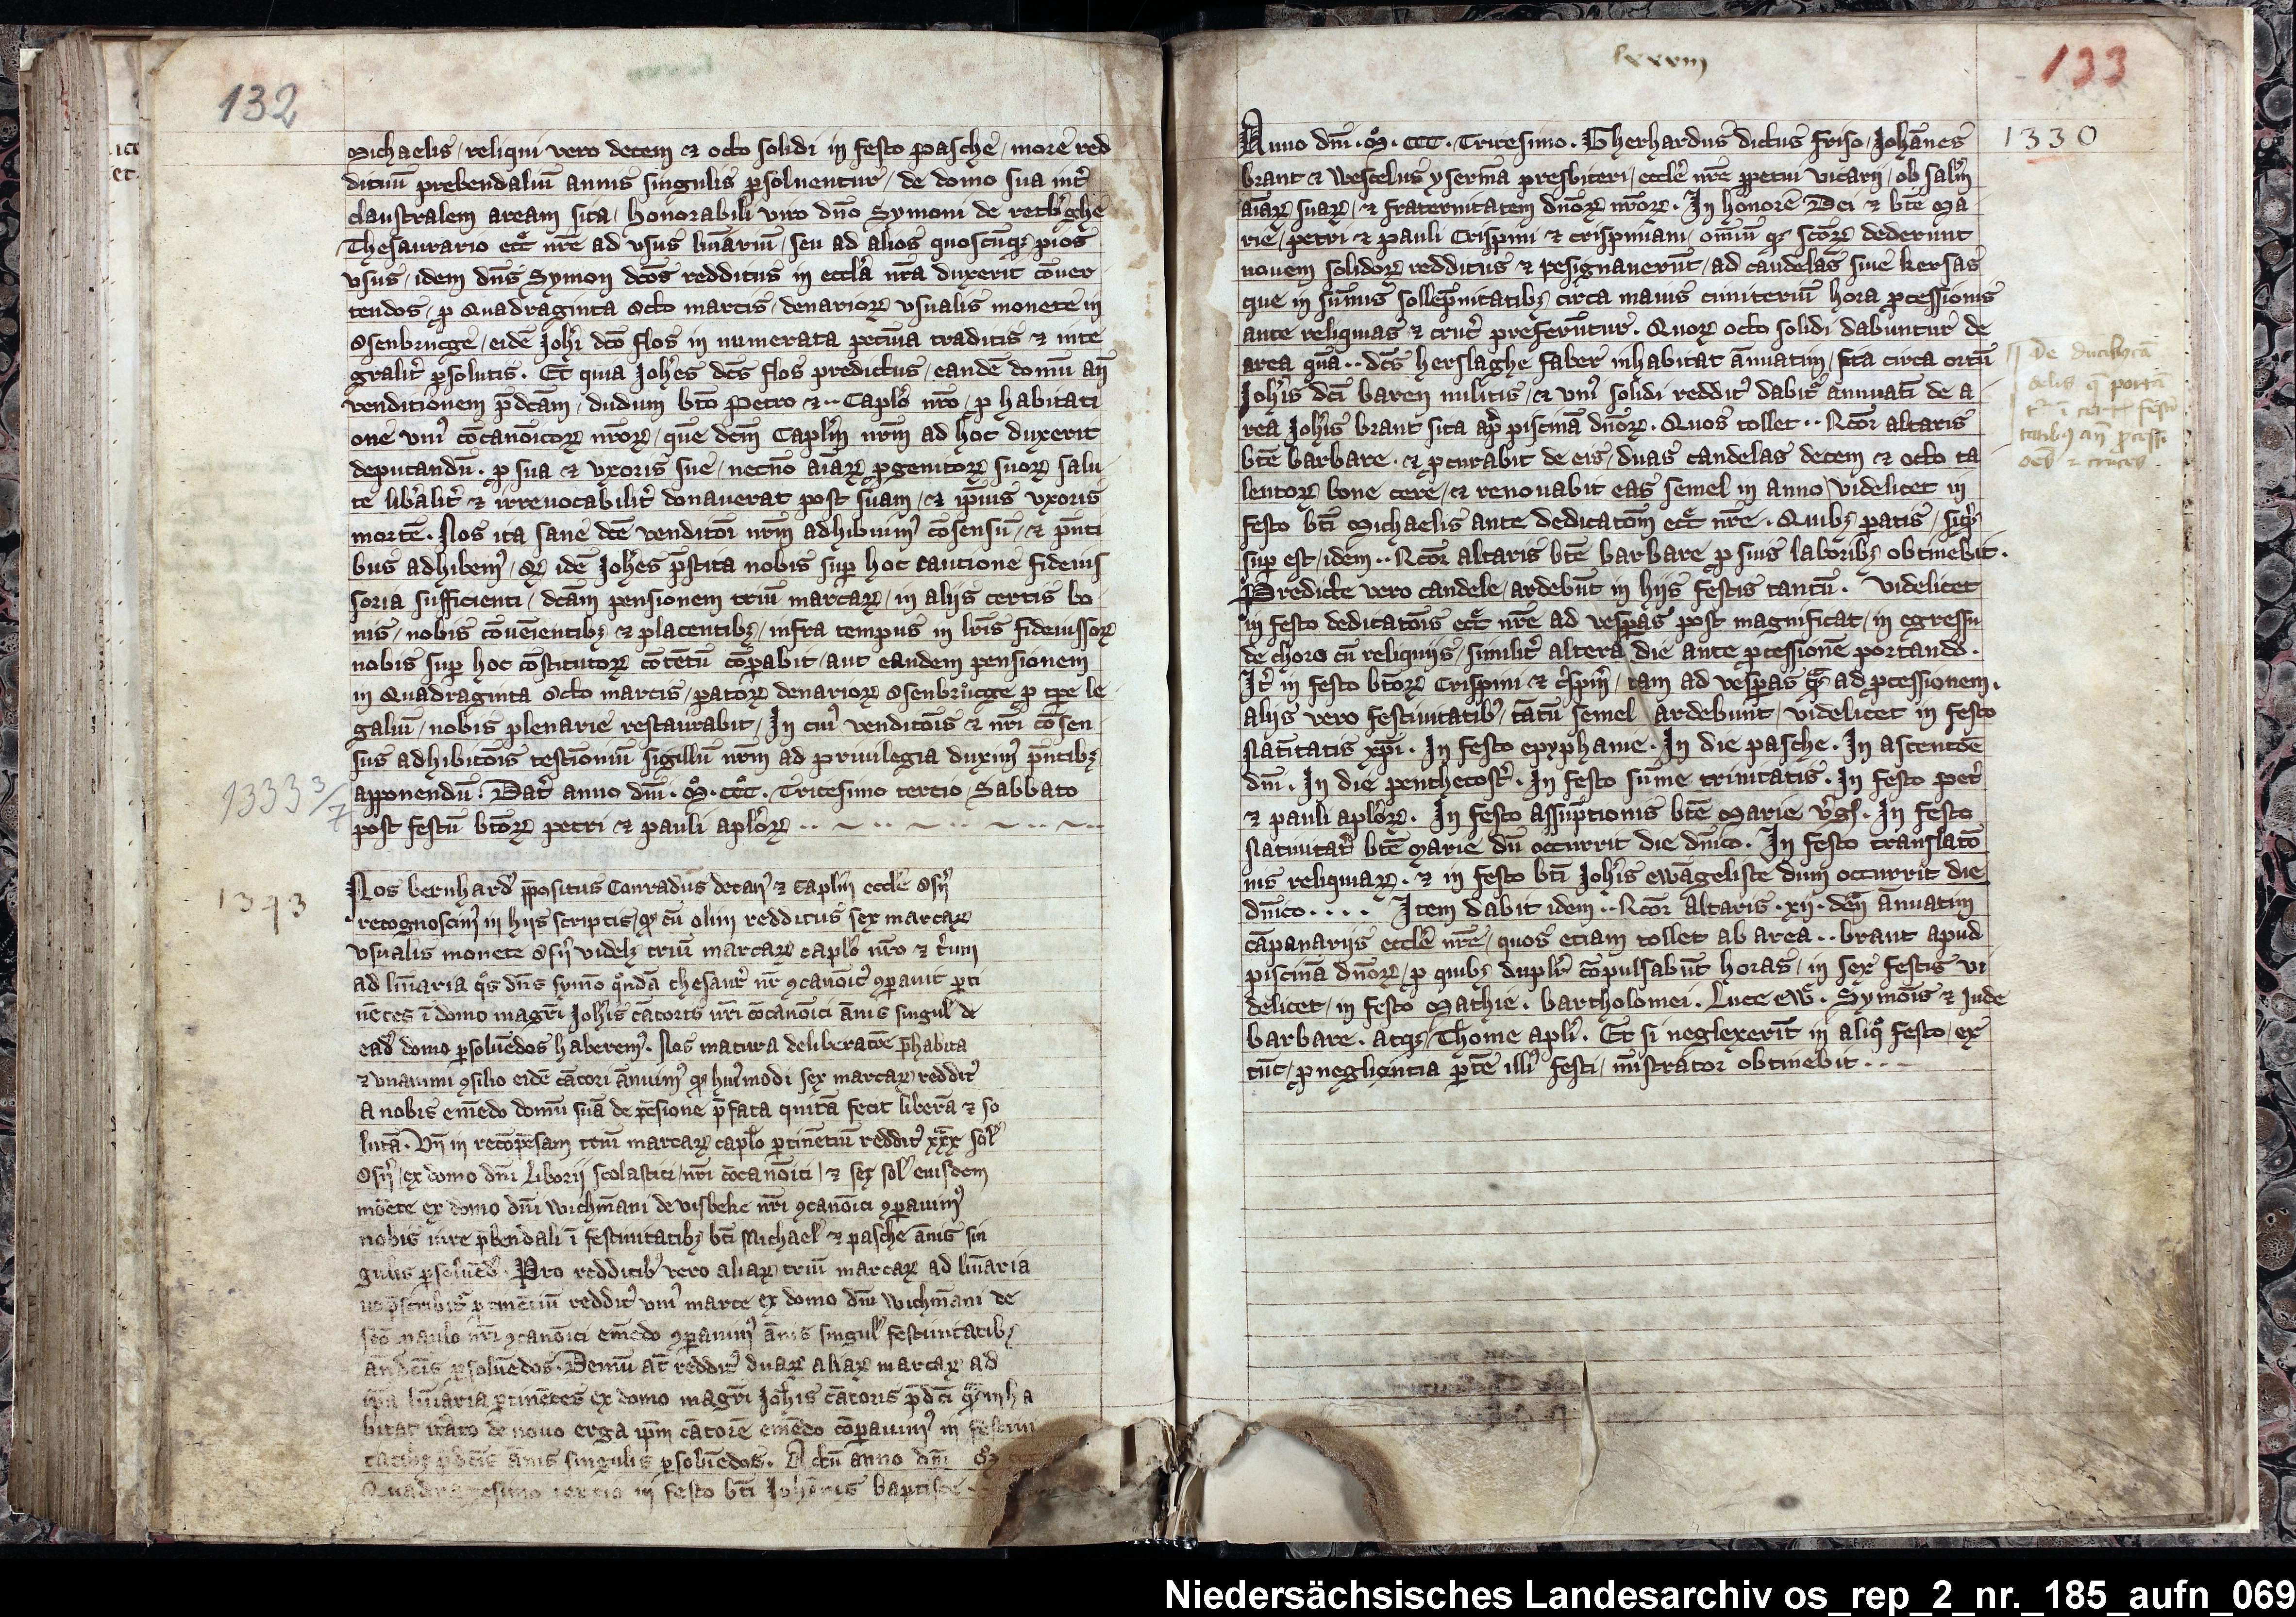 132
Michaelis / reliqui vero decem & octo solidi in festo pasche / more red
dituū prebendaliū annis singulis ꝑsoluentur / de domo sua int͛
claustralem aream sita / honorabili viro dn̄o Symoni de retb͛ghe
Thesaurario ecc͛ nr̄e ad vsus lūīariū / seu ad alios quoscūqꝫ pios
vsus / idem dn̄s Symon dc̄os redditus in eccl̄ia nr̄a duxerit cōuer
tendos / ꝓ Quadraginta Octo marcis / denarioꝝ vsualis monete in
Osenbrucge / eidē Joh̄i dc̄o flos in numerata pecūia traditis & inte
gralit͛ ꝑsolutis . Et quia Joh̄es dc̄s flos predictus / eandē domū an̄
venditionem p̄dc̄am / dudum bt̄o Petro & .. Capl̄o nr̄o / ꝓ habitati
one vniꝰ cōcanōicoꝝ nr̄oꝝ / quē dc̄m Capl̄m nr̄m ad hoc duxerit
deputandū . ꝓ sua & vxoris sue / necnō aīaꝝ ꝓgenitoꝝ suoꝝ salu
te lib͛alit͛ & irreuocabilit͛ donauerat post suam / & ip̄ius vxoris
mortē . Nos ita sane dc̄e venditōi nr̄m adhibuimꝰ cōsensū / & pn̄ti
bus adhibemꝰ / qꝫ idē Joh̄es p̄stita nobis suꝑ hoc cautione fideius
soria sufficienti / dc̄am pensionem triū marcaꝝ / in alijs certis bo
nis / nobis cōueīentibꝫ & placentibꝫ / infra tempus in lr̄is fideiussoꝝ
nobis suꝑ hoc cōstitutoꝝ cōtētū cōꝑabit / aut eandem pensionem
in Quadraginta Octo marcis / ꝑatoꝝ denarioꝝ Osenbrucge ꝓ tꝑe le
galiū / nobis plenarie restaurabit / In cuiꝰ venditōis & nr̄i cōsen
sus adhibitōis testīoniū sigillū nr̄m ad priuilegia duximꝰ pn̄tibꝫ
apponendū . Dat͛ anno dn̄i . M̊ . CCC̊ . Tricesimo tercio / Sabbato
1333 3/7
post festū bt̄oꝝ petri & pauli apl̄oꝝ .. ~ .. ~ .. ~ .. ~ ..
1343
Nos bernhardꝰ p̄positus Conradus decanꝰ & Capl̄m eccl̄ie Osn̄
recognoscimꝰ in hijs scriptis / qꝫ cū olim redditus sex marcaꝝ
vsualis monete Osn̄ videlꝫ triū marcaꝝ capl̄o nr̄o & t͛um
ad lūīaria q̊s dn̄s symō q̊ndā thesaur͛ nr̄ ꝯcanōicꝰ ꝯꝑauit ꝑti
nētes ī domo magr̄i Joh̄is cātoris nr̄i cōcanōici ānis singul̄ de
eadꝰ domo ꝑsoluēdos haberemꝰ . Nos matura deliberatōe p̄habita
& vnanimi ꝯsilio eidē cātori ānuimꝰ qꝫ huiꝰmodi sex marcaꝝ redditꝰ
a nobis emēdo domū suā de pēsione p̄fata quitā fecit liberā & so
lutā . Vn̄ in recōpēsam triū marcaꝝ capl̄o ꝑtinētiū redditꝰ xxx sol̄
Osn̄ / ex domo dn̄i Liborij scolastici / nr̄i cōcanōici / & sex sol̄ eiusdem
mōete ex domo dn̄i wichmāni de visbeke nr̄i ꝯcanōici ꝯꝑauimꝰ
nobis iure p̄bendali ī festiuitatibꝫ bt̄i Michael̄ & pasche ānis sin
gulis ꝑsoluēdꝰ . Pro redditibꝰ vero aliaꝝ triū marcaꝝ ad lūīaria
ut p̄scribit͛ ꝑtinētiū redditꝰ vniꝰ marce ex domo dn̄i wichmāni de
sc̄o paulo nr̄i ꝯcanōici emēdo ꝯꝑauimꝰ ānis singul̄ festiuitatibꝫ
ān dc̄is ꝑsoluēdos . Demū at̄ redditꝰ duaꝝ aliaꝝ marcaꝝ ad
ip̄a lūīaria ꝑtinētes ex domo magr̄i Joh̄is cātoris p̄dc̄i quā inha
bitat it͛ato de nouo erga ip̄m cātorē emēdo cōꝑauimꝰ in festiui
tatibꝫ p̄dc̄is ānis singulis ꝑsoluēdos . Actū anno dn̄i M̊
Quadragesimo tercio in festo bt̄i Joh̄annis baptiste .
lxxxiij
133
Anno dn̄i . M̊ . CCC . Tricesimo . Gherhardus dictus friso / Johānes
1330
brant & Wescelus yserm̄a presbiteri / eccl̄ie nr̄e ꝑpetui vicarij / ob salūt
aīaꝝ suaꝝ / & fraternitatem dn̄oꝝ nr̄oꝝ . In honorē Dei & bt̄e Ma
rie / petri & pauli Crispini & crispiniani / oīm̄ qꝫ sc̄oꝝ dederunt
nouem solidoꝝ redditus & resignauerūt / ad candelas siue kersas
que in sūmis sollēpnitatibꝫ circa maius cimiteriū hora ꝓcessionis
ante reliquias & cruc͛ preferūtur . Quoꝝ octo solidi dabuntur de
area quā .. dc̄s herslaghe faber inhabitat ānuatim / sita circa ortū
Joh̄is dc̄i baren militis / & vniꝰ solidi redditꝰ dabit͛ ānuatī de a
rea Joh̄is brant sita ap̄d piscinā dn̄oꝝ . Quos tollet .. Rc̄or altaris
bt̄e barbare . & ꝓcurabit de eis / duas candelas decem & octo ta
lentoꝝ bone cere / & renouabit eas semel in anno videlicet in
festo bt̄i Michaelis ante dedicatōm ecc͛ nr̄e . Quibꝫ ꝑatis / siqͥd
suꝑ est / idem .. Rc̄or altaris bt̄e barbare ꝓ suis laboribꝫ obtinebit .
Predicte vero candele / ardebūt in hijs festis tantū . videlicet
in festo dedicatōis ecc͛ nr̄e ad vesꝑas post magnificat / in egressu
de choro cū reliquijs / similit͛ altera die ante ꝓcessionē portando .
It͛ in festo bt̄oꝝ Crispini & c͛spīn / tam ad vesꝑas qꝫ ad ꝓcessionem .
alijs vero festiuitatibꝰ / tātū semel ardebunt / videlicet in festo
Natītatis xp̄i . In festo epyphanie . In die pasche . In ascentōe
dn̄i . In die penthecost͛ . In festo sum̄e trinitatis . In festo pet͛
& pauli apl̄oꝝ . In festo assūptionis bt̄e Marie v͛gīs . In festo
Natiuitat͛ bt̄e Marie dū occurrit die dn̄ico . In festo translatō
nis reliquiaꝝ . & in festo bt̄i Joh̄is ewāgeliste dum occurrit die
dn̄ico . . . . Item dabit idem .. Rc̄or altaris . xij . den̄ ānuatim
cāpanarijs eccl̄ie nr̄e / quos etiam tollet ab area .. brant apud
piscinā dn̄oꝝ / ꝓ quibꝫ dupl̄r cōpulsabūt horas / in sex festis vi
delicet / in festo Mathie . bartholomei . Luce ew̄ . Symōis & Jude
barbare . atqꝫ Thome apl̄i . Et si neglexerīt in aliq̊ festo / ex
tūc / ꝓ negligētia ꝑtē illiꝰ festi / mīstrator obtinebit . . .
De duabꝫ cā
delis q̄ portā
festi
tatibꝫ an̄ ꝓcessi
oēs & cruces
Niedersächsisches Landesarchiv os_rep_2_nr._185_aufn_069